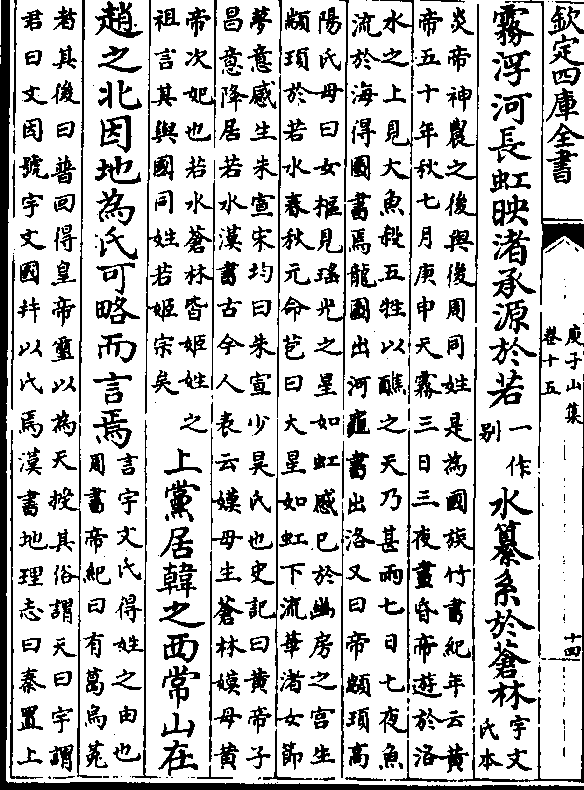 欽定四庫全書
庾子山集
卷十五
十四
霧浮河長虹映渚承源於若
一作
別
水纂系於蒼林
宇文
氏本
炎帝神農之後與後周同姓是為國族竹書紀年云黃
帝五十年秋七月庚申天霧三日三夜晝昏帝遊於洛
水之上見大魚殺五牲以醮之天乃甚雨七日七夜魚
流於海得圖書焉龍圖出河龜書出洛又曰帝顓頊高
陽氏母曰女樞見瑤光之星如虹感已於幽房之宫生
顓頊於若水春秋元命苞曰大星如虹下流華渚女節
夢意感生朱宣宋均曰朱宣少昊氏也史記曰黃帝子
昌意降居若水漢書古今人表云嫫母生蒼林嫫母黃
帝次妃也若水蒼林皆姬姓之
祖言其與國同姓若姬宗矣
上黨居韓之西常山在
趙之北因地為氏可略而言焉
言宇文氏得姓之由也
周書帝紀曰有葛烏菟
者其後曰普回得皇帝璽以為天授其俗謂天曰宇謂
君曰文因號宇文國幷以氏焉漢書地理志曰秦置上